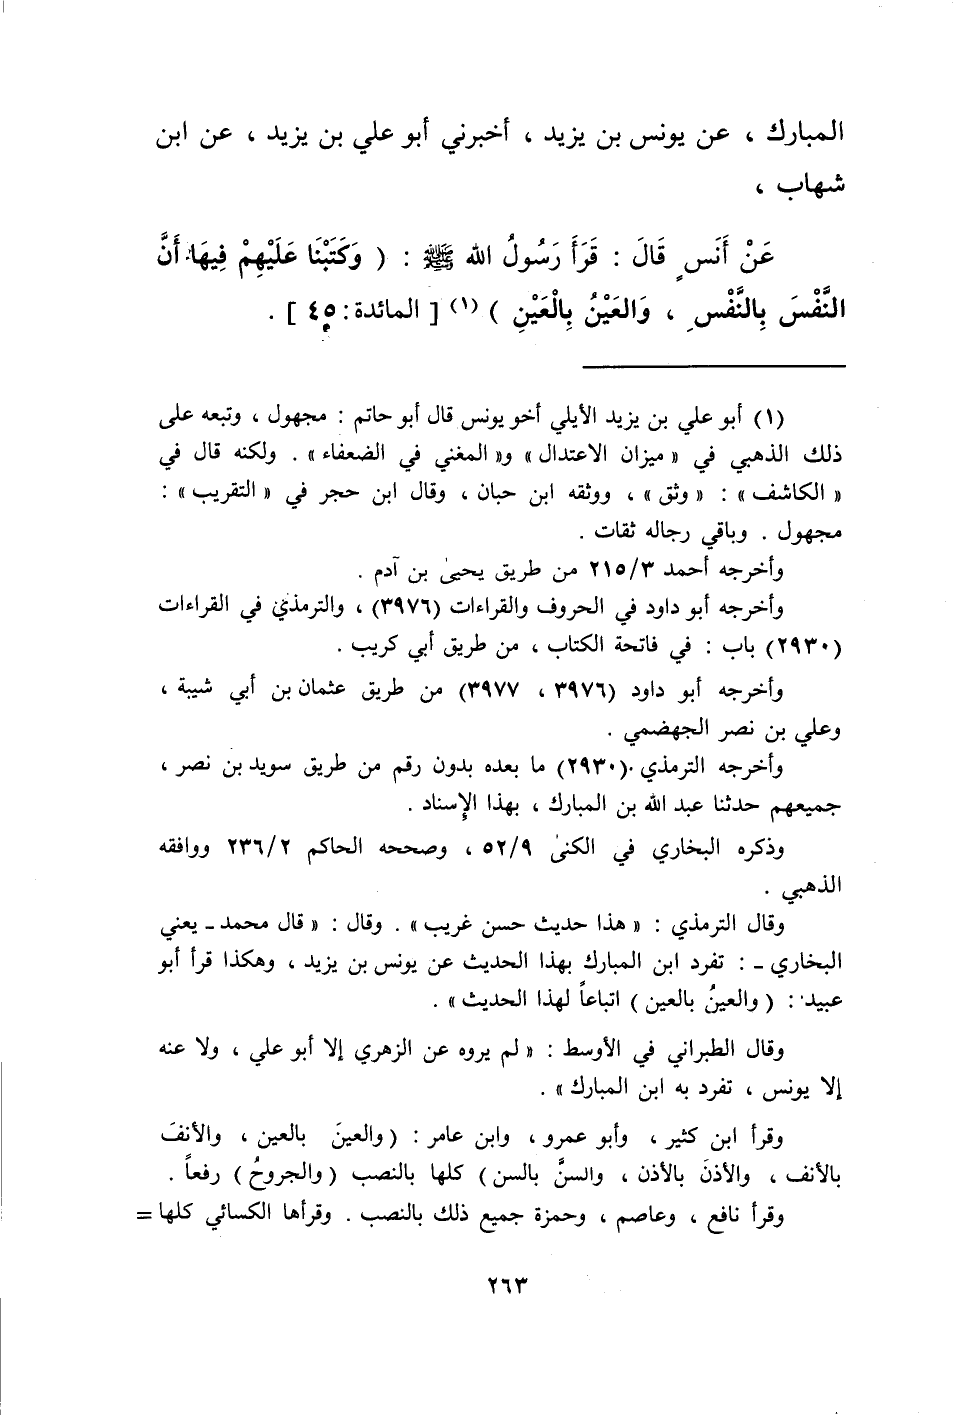 المبارك ، عن يونس بن يزيد ، أخبرني أبو علي بن يزيد ، عن ابن
شهاب ،
عَنْ أَنَسٍ قَالَ : قَرَأَ رَسُولُ الله ﷺ : ( وَكَتَبْنَا عَلَيْهِمْ فِيهَا أَنَّ
النَّفْسَ بِالنَّفْسِ ، وَالعَيْنُ بِالْعَيْنِ ) (١) [ المائدة : ٤٥ ] .
(١) أبو علي بن يزيد الأيلي أخو يونس قال أبو حاتم : مجهول ، وتبعه على
ذلك الذهبي في « ميزان الاعتدال » و« المغني في الضعفاء » . ولكنه قال في
« الكاشف » : « وثق » ، ووثقه ابن حبان ، وقال ابن حجر في « التقريب » :
مجهول . وباقي رجاله ثقات .
وأخرجه أحمد ٢١٥/٣ من طريق يحيىٰ بن آدم .
وأخرجه أبو داود في الحروف والقراءات (٣٩٧٦) ، والترمذي في القراءات
(٢٩٣٠) باب : في فاتحة الكتاب ، من طريق أبي كريب .
وأخرجه أبو داود (٣٩٧٦ ، ٣٩٧٧) من طريق عثمان بن أبي شيبة ،
وعلي بن نصر الجهضمي .
وأخرجه الترمذي (٢٩٣٠) ما بعده بدون رقم من طريق سويد بن نصر ،
جميعهم حدثنا عبد الله بن المبارك ، بهذا الإسناد .
وذكره البخاري في الكنىٰ ٥٢/٩ ، وصححه الحاكم ٢٣٦/٢ ووافقه
الذهبي .
وقال الترمذي : « هذا حديث حسن غريب » . وقال : « قال محمد - يعني
البخاري - : تفرد ابن المبارك بهذا الحديث عن يونس بن يزيد ، وهكذا قرأ أبو
عبيد : ( والعينُ بالعين ) اتباعاً لهذا الحديث » .
وقال الطبراني في الأوسط : « لم يروه عن الزهري إلا أبو علي ، ولا عنه
إلا يونس ، تفرد به ابن المبارك » .
وقرأ ابن كثير ، وأبو عمرو ، وابن عامر : (والعينَ بالعين ، والأنفَ
بالأنف ، والأذنَ بالأذن ، والسنَّ بالسن ) كلها بالنصب ( والجروحُ ) رفعاً .
وقرأ نافع ، وعاصم ، وحمزة جميع ذلك بالنصب . وقرأها الكسائي كلها =
٢٦٣